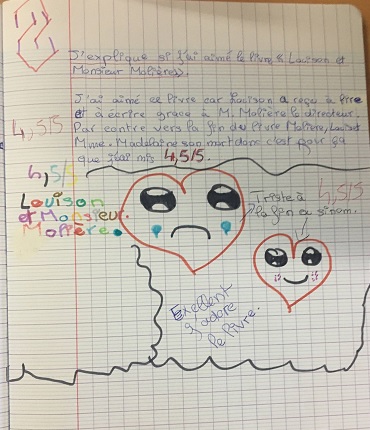 J'explique si j'ai aimé le livre "Louison et
Monsieur Molière".
J'ai aimé ce livre car Louison a reçu à lire
et à écrire grace à M. Molière le directeur.
Par contre vers la fin du livre Molière, Louis et
Mme. Madelaine son mort donc c'est pour ça
que j'ai mis 4,5/5.
4,5/5
4,5/
Louison
et Monsieur.
Molière.
Triste à
la fin ou sinon.
4,5/5
Exellent
j'adore
le livre.